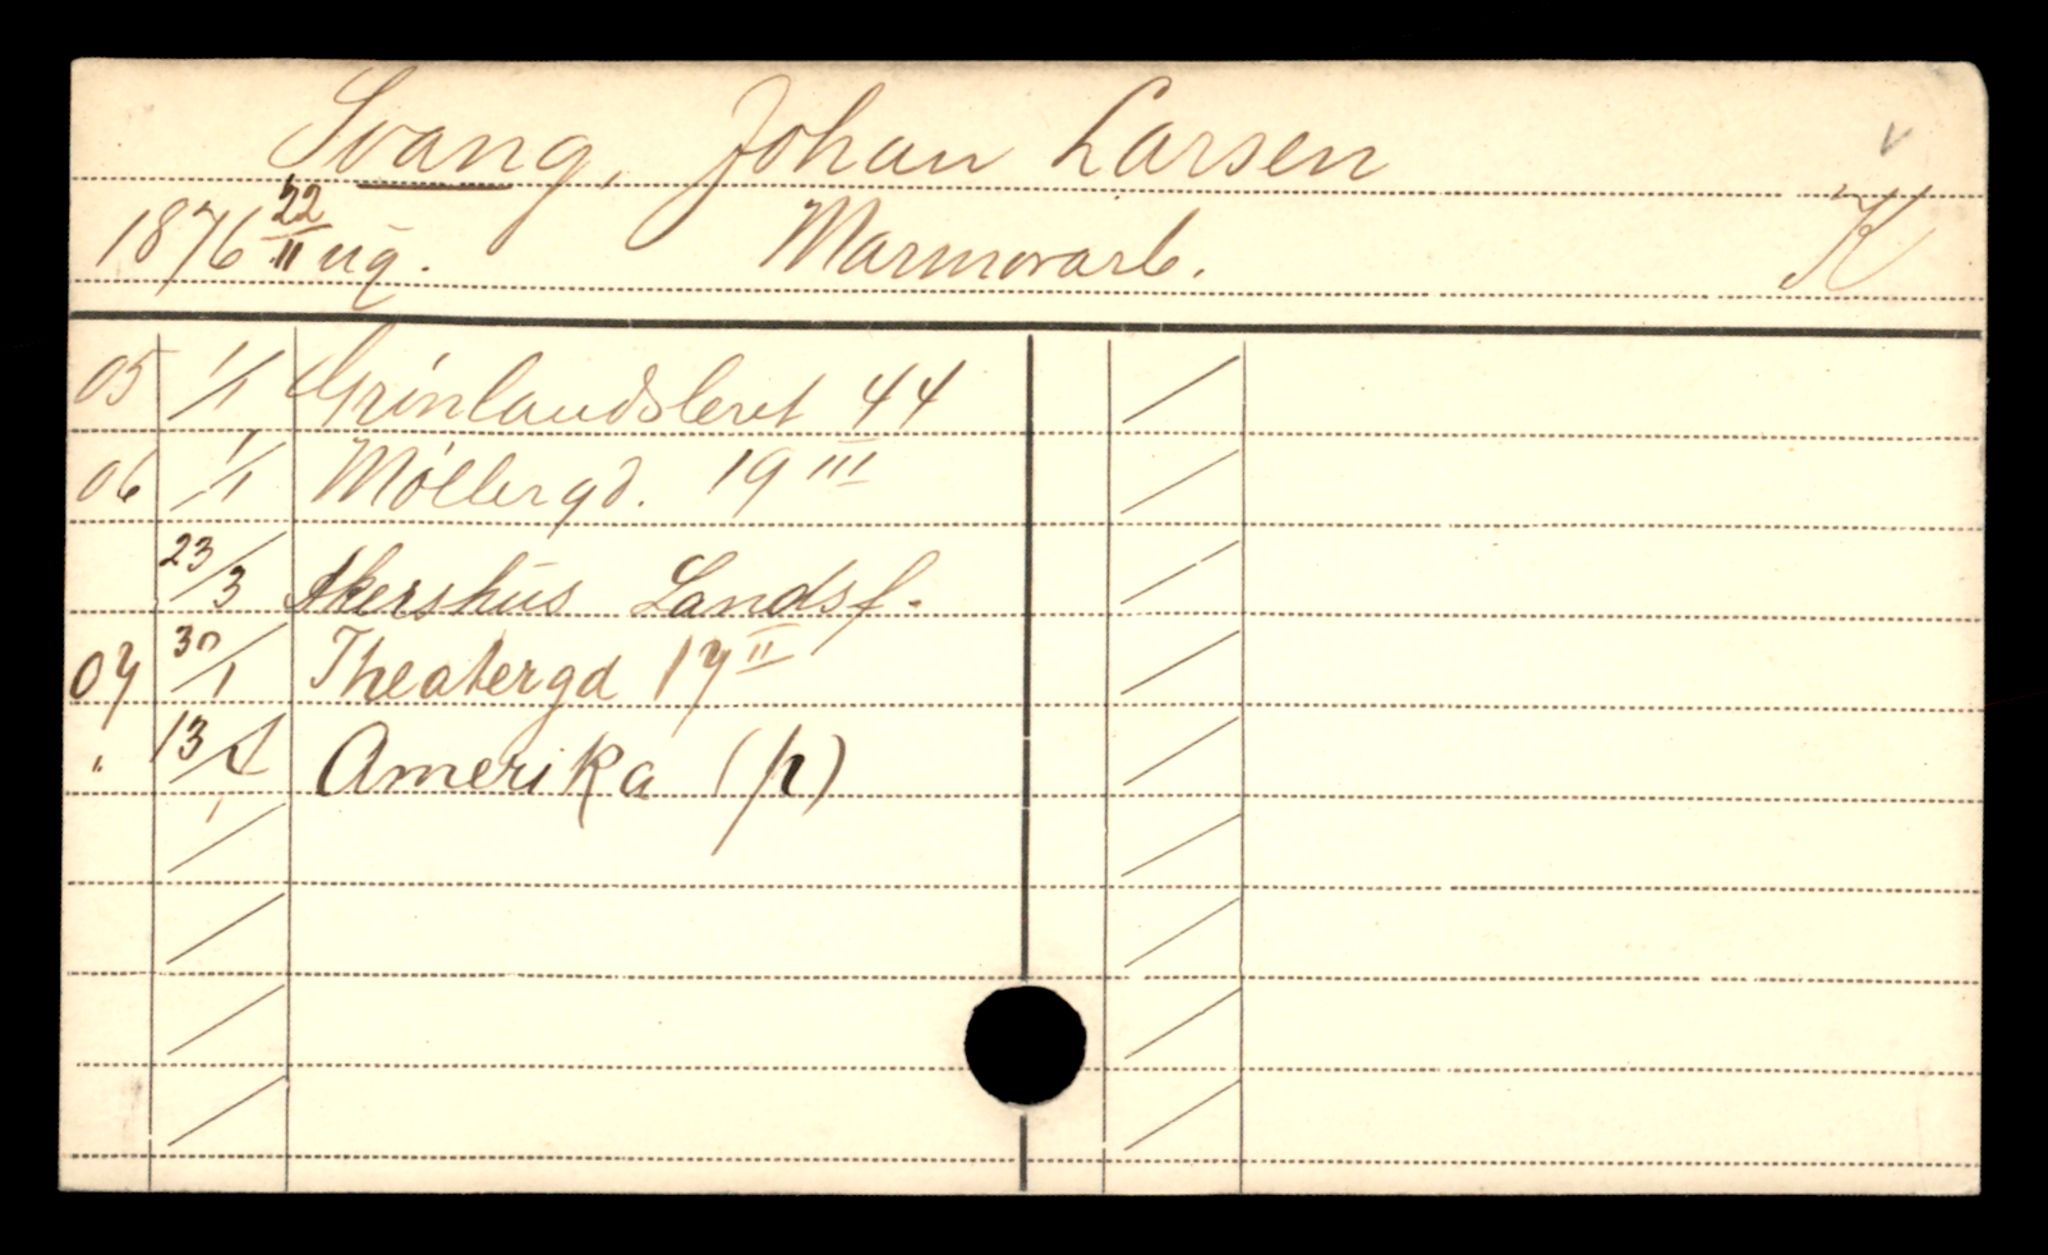 Svang, Johan Larsen
1876 22/11 ug. Marmorarb. K
05 1/1 Grönlandsleret 44
06 1/1 Möllergd. 19 III
23/3 Akershus Landsf.
07 30/1 Theatergd 17 II
" 13/4 Amerika (p)